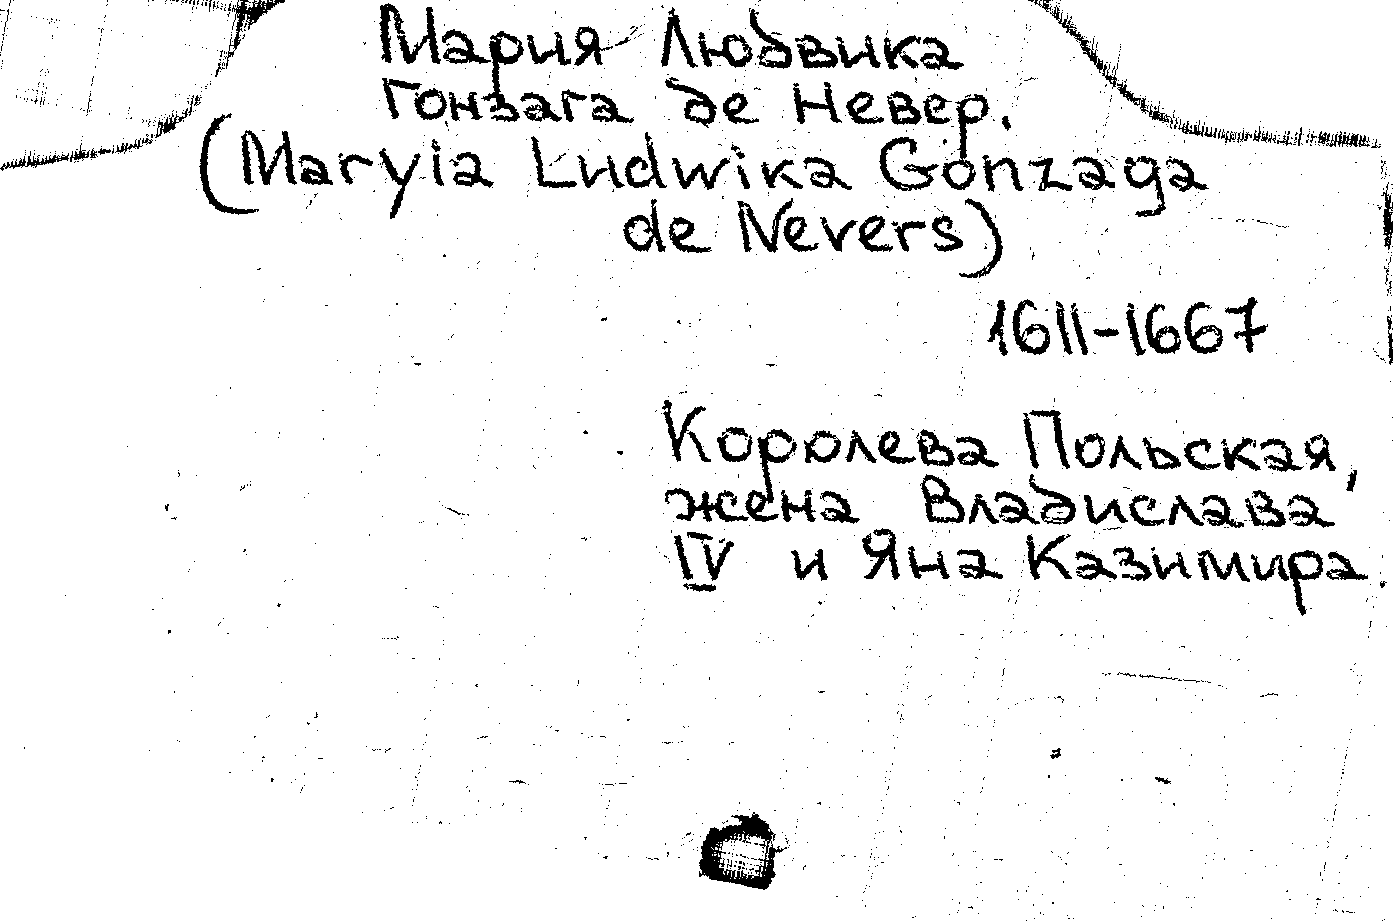 Мария Людвика
Гонзага де Невер.
(Maryia Ludwika Gonzaga
de Nevers)
1611-1667
Королева Польская,
жена Владислава
IV и Яна Казимира.